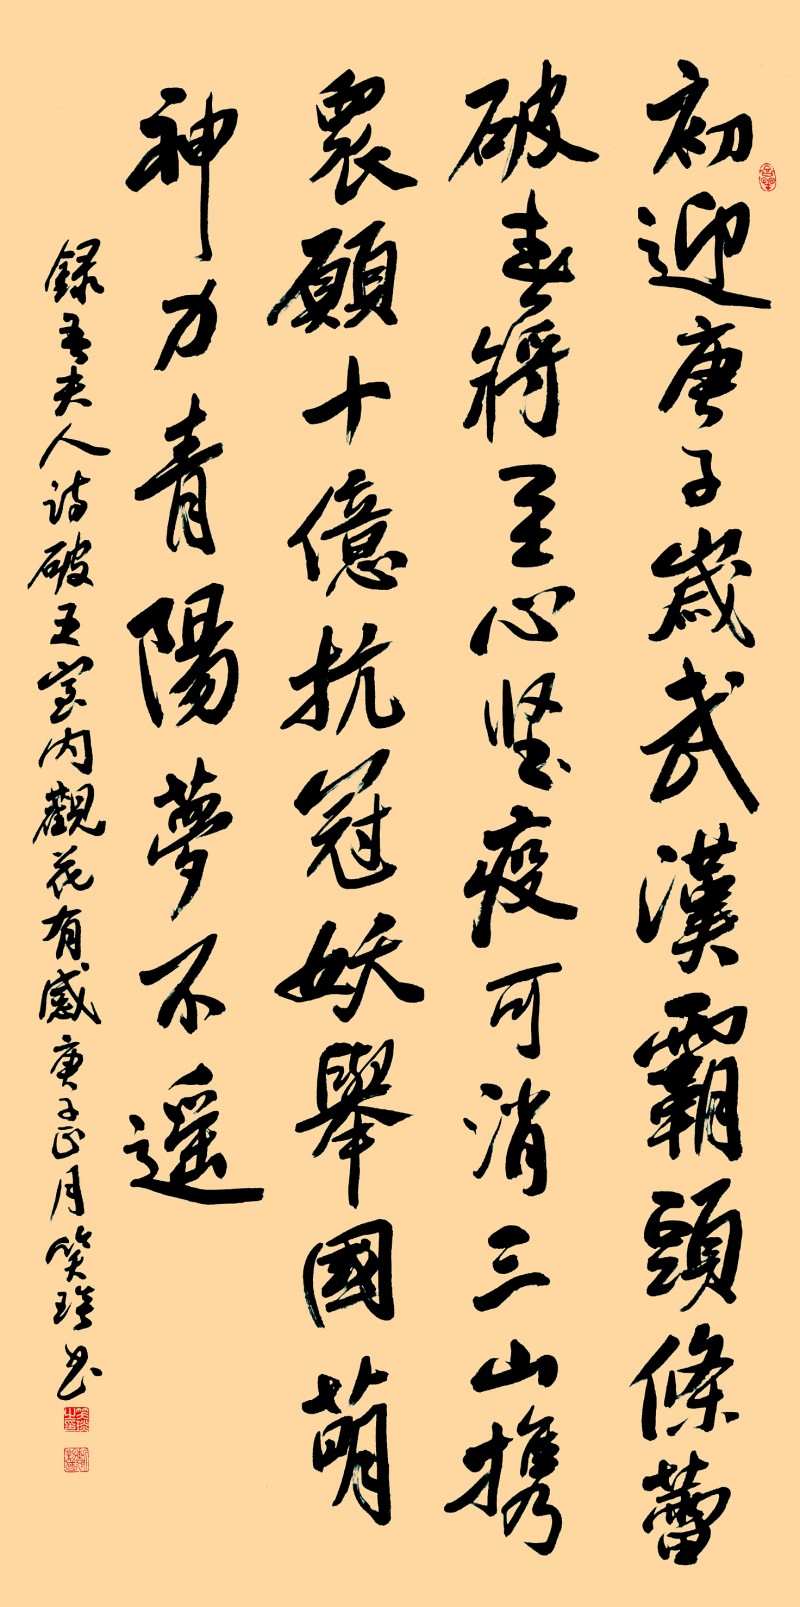 初迎庚子歲武漢霸頭條蕾
破春將至心堅疫可消三山携
衆願十億抗冠妖舉國萌
神力青陽夢不遥
録吾夫人詩破五室内觀花有感庚子正月笑琀书